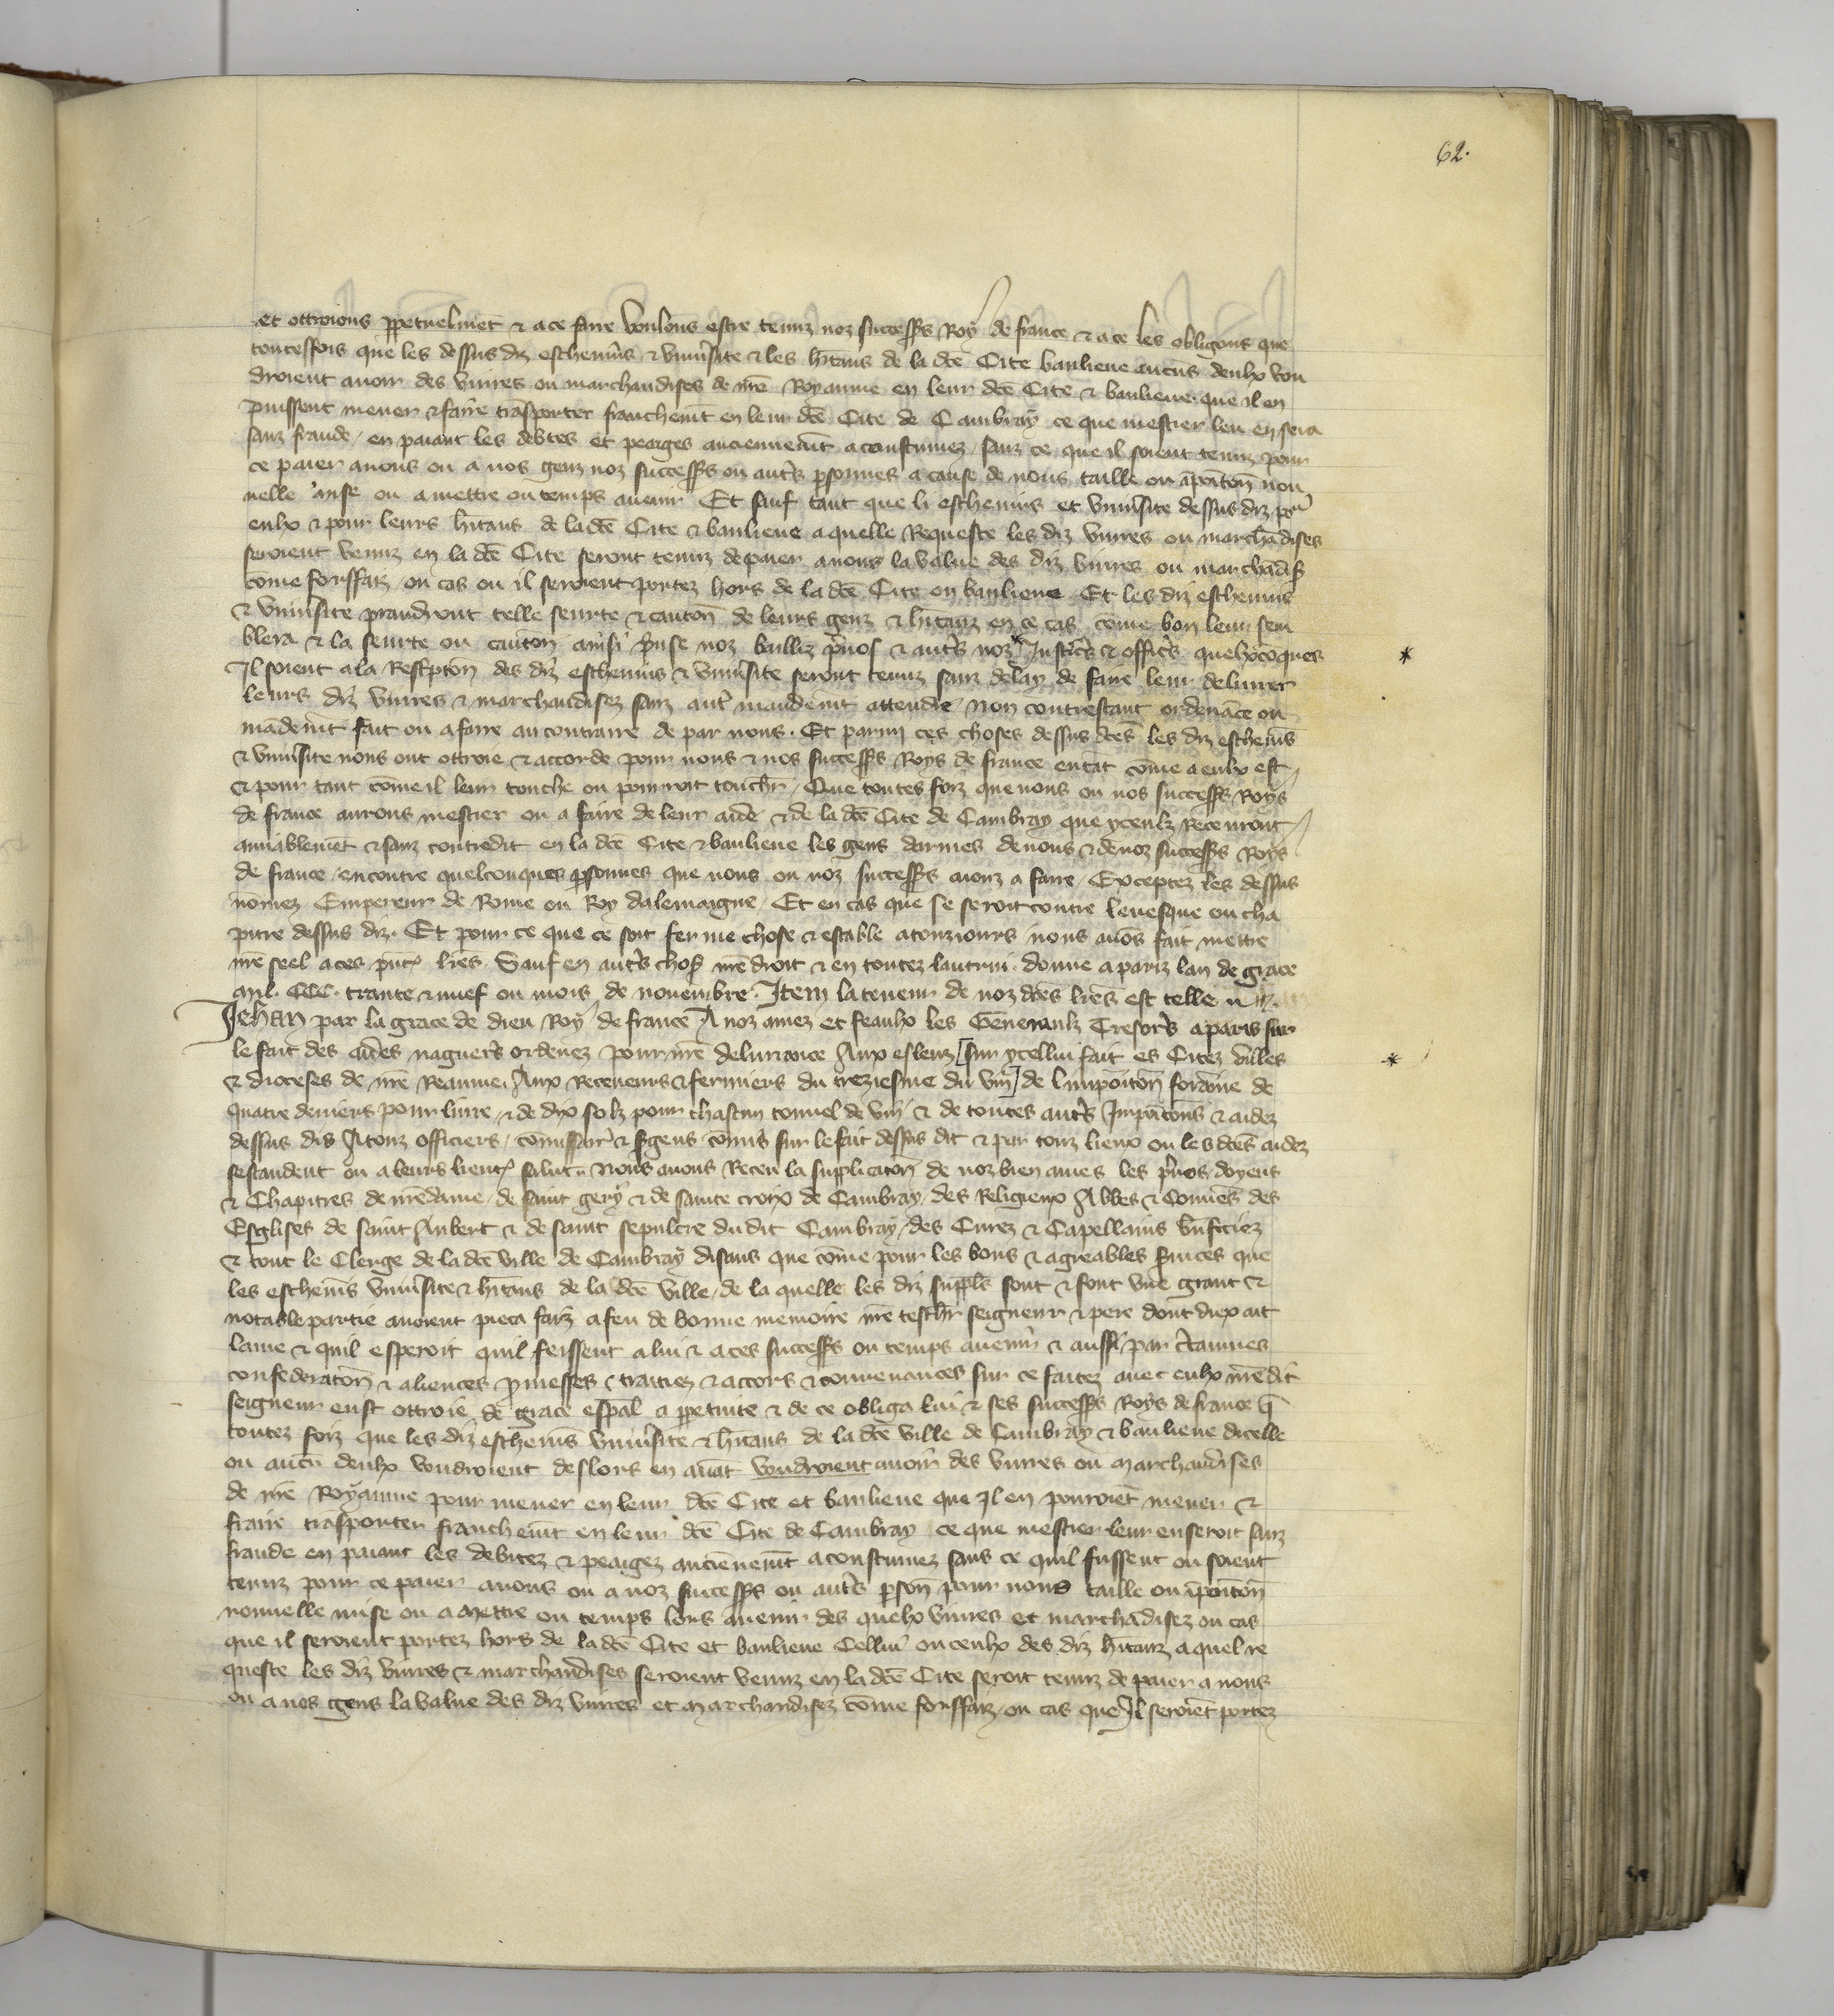 62.
et ottroions ppetuelmēt & a ce faire voulons estre tenuz noz successrs Roy de france & a ce les obligons que
toutesfois que les dessus diz escheuīs & vniūsite & les hītans de la dcē Cite banliene aucūs deulx vou
droient auoir des viures ou marchandises de nrē Royaume en leur dcē Cite & banliene que il en
puissent mener & faire trāsporter franchemīt en leur dcē Cite de Cambray ce que mestier leu en sera
sanz fraude / en paiant les debtes et peages anciennemīt acoustumez / sanz ce que il soient tenuz pour
ce paier a nous ou a nos genz noz successrs ou autrs psonnes a cause de nous taille ou īpoītōn nou
uelle mise ou a mettre ou temps auenir Et sauf tant que li escheuins et vniūsite dessus diz por
eulx & pour leurs hītans de la dcē Cite & banliene a quelle Requeste les diz viures ou marchādises
seroient venuz en la dcē Cite seront tenuz de paier a nous la value des diz viures ou marchādis
cōme forffaiz ou cas ou il seroient portez hors de la dcē Cite ou banliene Et les diz escheuins
& vniūsite prandront telle seurte & cautōn de leurs genz & hītanz en ce cas cōme bon leur sem
blera & la seurte ou cautōn ainsi prise noz bailliz puos & autrs noz Justicrs & officrs quelxcōques
Il soient a la Rescptōn des diz escheuīs & vniūsite seront tenuz sanz delay de faire leur deliurer
leurs diz viures & marchandisez sanz autr mandemīt attendre non contrestant ordenāce ou
mādemīt fait ou a faire au contraire de par nous. Et parmi ces choses dessus dcēs les diz escheuīs
& vniūsite nous ont ottroie & accorde pour nous & nos successrs Roys de france entāt cōme a eulx est
& pour tant cōme il leur touche ou pourroit touchr / Que toutes foiz que nous ou nos successrs Roys
de france aurons mestier ou a faire de leur aide & de la dcē Cite de Cambray que yceulz Receuront
amiablemēt & sanz contredit en la dcē Cite & banliene les gens darmes de nous & de noz successrs Roys
de france / encontre quelconques psonnes que nous ou noz successrs aionz a faire / Exceptez les dessus
nōmez Empereur de Rome ou Roy dalemaigne / Et en cas que se seroit contre leuesque ou cha
pitre dessus diz. Et pour ce que ce soit ferme chose & estable a touziours nous auōs fait mettre
nrē seel a ces pnts lrēs. Sauf en autrs chos nrē droit & en toutez lautrui. donne a pariz lan de grace
mil. CCC. trante & nuef ou mois de nouembre. Item la teneur de noz dcēs lrēs est telle
Jehan par la grace de dieu Roy de france A noz amez et feaulx les Generaulz Tresorrs a paris sur
le fait des aides naguers ordenez pour nrē deliurance Aux esleuz [sur ycellui fait es Citez villes
& dioceses de nrē Reaume. Aux Receueurs & fermiers du treziesme du vin] de limpoītōn foraine de
quatre deniers pour liure & de dix solz pour chascun tonnel de vin & de toutes autrs Impoītōns & aidez
dessus dis Atouz officiers / cōmissair & sgens cōmis sur le fait dessus dit & par touz lieux ou les dcēs aidez
sestandent ou a leurs lieuts salut. Nous auons Receu la supplicatōn de noz bien ames les puos / doyens
& Chapitres de nrēdame / de saint gery & de sainte croix de Cambray / des Religieux Abbes & Conuēs des
Esglises de saint Aubert & de saint sepulcre dudit Cambray / des Curez & Capellains bnficiez
& tout le Clerge de la dcē ville de Cambray disans que cōme pour les bons & agreables suices que
les escheuīs vniūsite & hītans de la dcē ville / de la quelle les diz suppls sont & font vne grant &
notable partie auoient pieca faiz a feu de bonne memoire nrē treschr seigneur & pere dont diex ait
lame & quil esperoit quil feissent a lui & a ces successrs ou temps auenir & aussi par ctaines
confederatōn & aliences pmesses & traitiez & accors & conuenances sur ce faitez auec eulx nrēdit
seigneur eust ottroie de grace espāl a ppetuite & de ce obliga lui & ses successrs Roys de france q̄
toutez foiz que les diz escheuīs vniūsite & hītans de la dcē ville de Cambray & banliene dicelle
ou aucū deulx voudroient deslors en auāt voudroient auoir des viures ou marchandises
de nrē Royaume pour mener en leur dcē Cite et banliene que Il en pouroiēt mener &
fraire trāsporter franchemīt en leur dcē Cite de Cambray ce que mestier leur en seroit sanz
fraude en paiant les debitez & peaigez anciēnemīt acoustumez sans ce quil fussent ou soient
tenuz pour ce paier a nous ou a noz successrs ou autrs psoñ pour nous taille ou īpoītōn
nouuelle mise ou a mettre ou temps lors auenir des quelx viures et marchādisez ou cas
que il seroient portez hors de la dcē Cite et banliene Cellui ou ceulx des diz hītanz a quel re
queste les diz viures & marchandises seroient venuz en la dcē Cite seroit tenuz de paier a nous
ou a nos gens la value des diz viures et marchandisez cōme forffaiz / ou cas que Il seroiēt portez